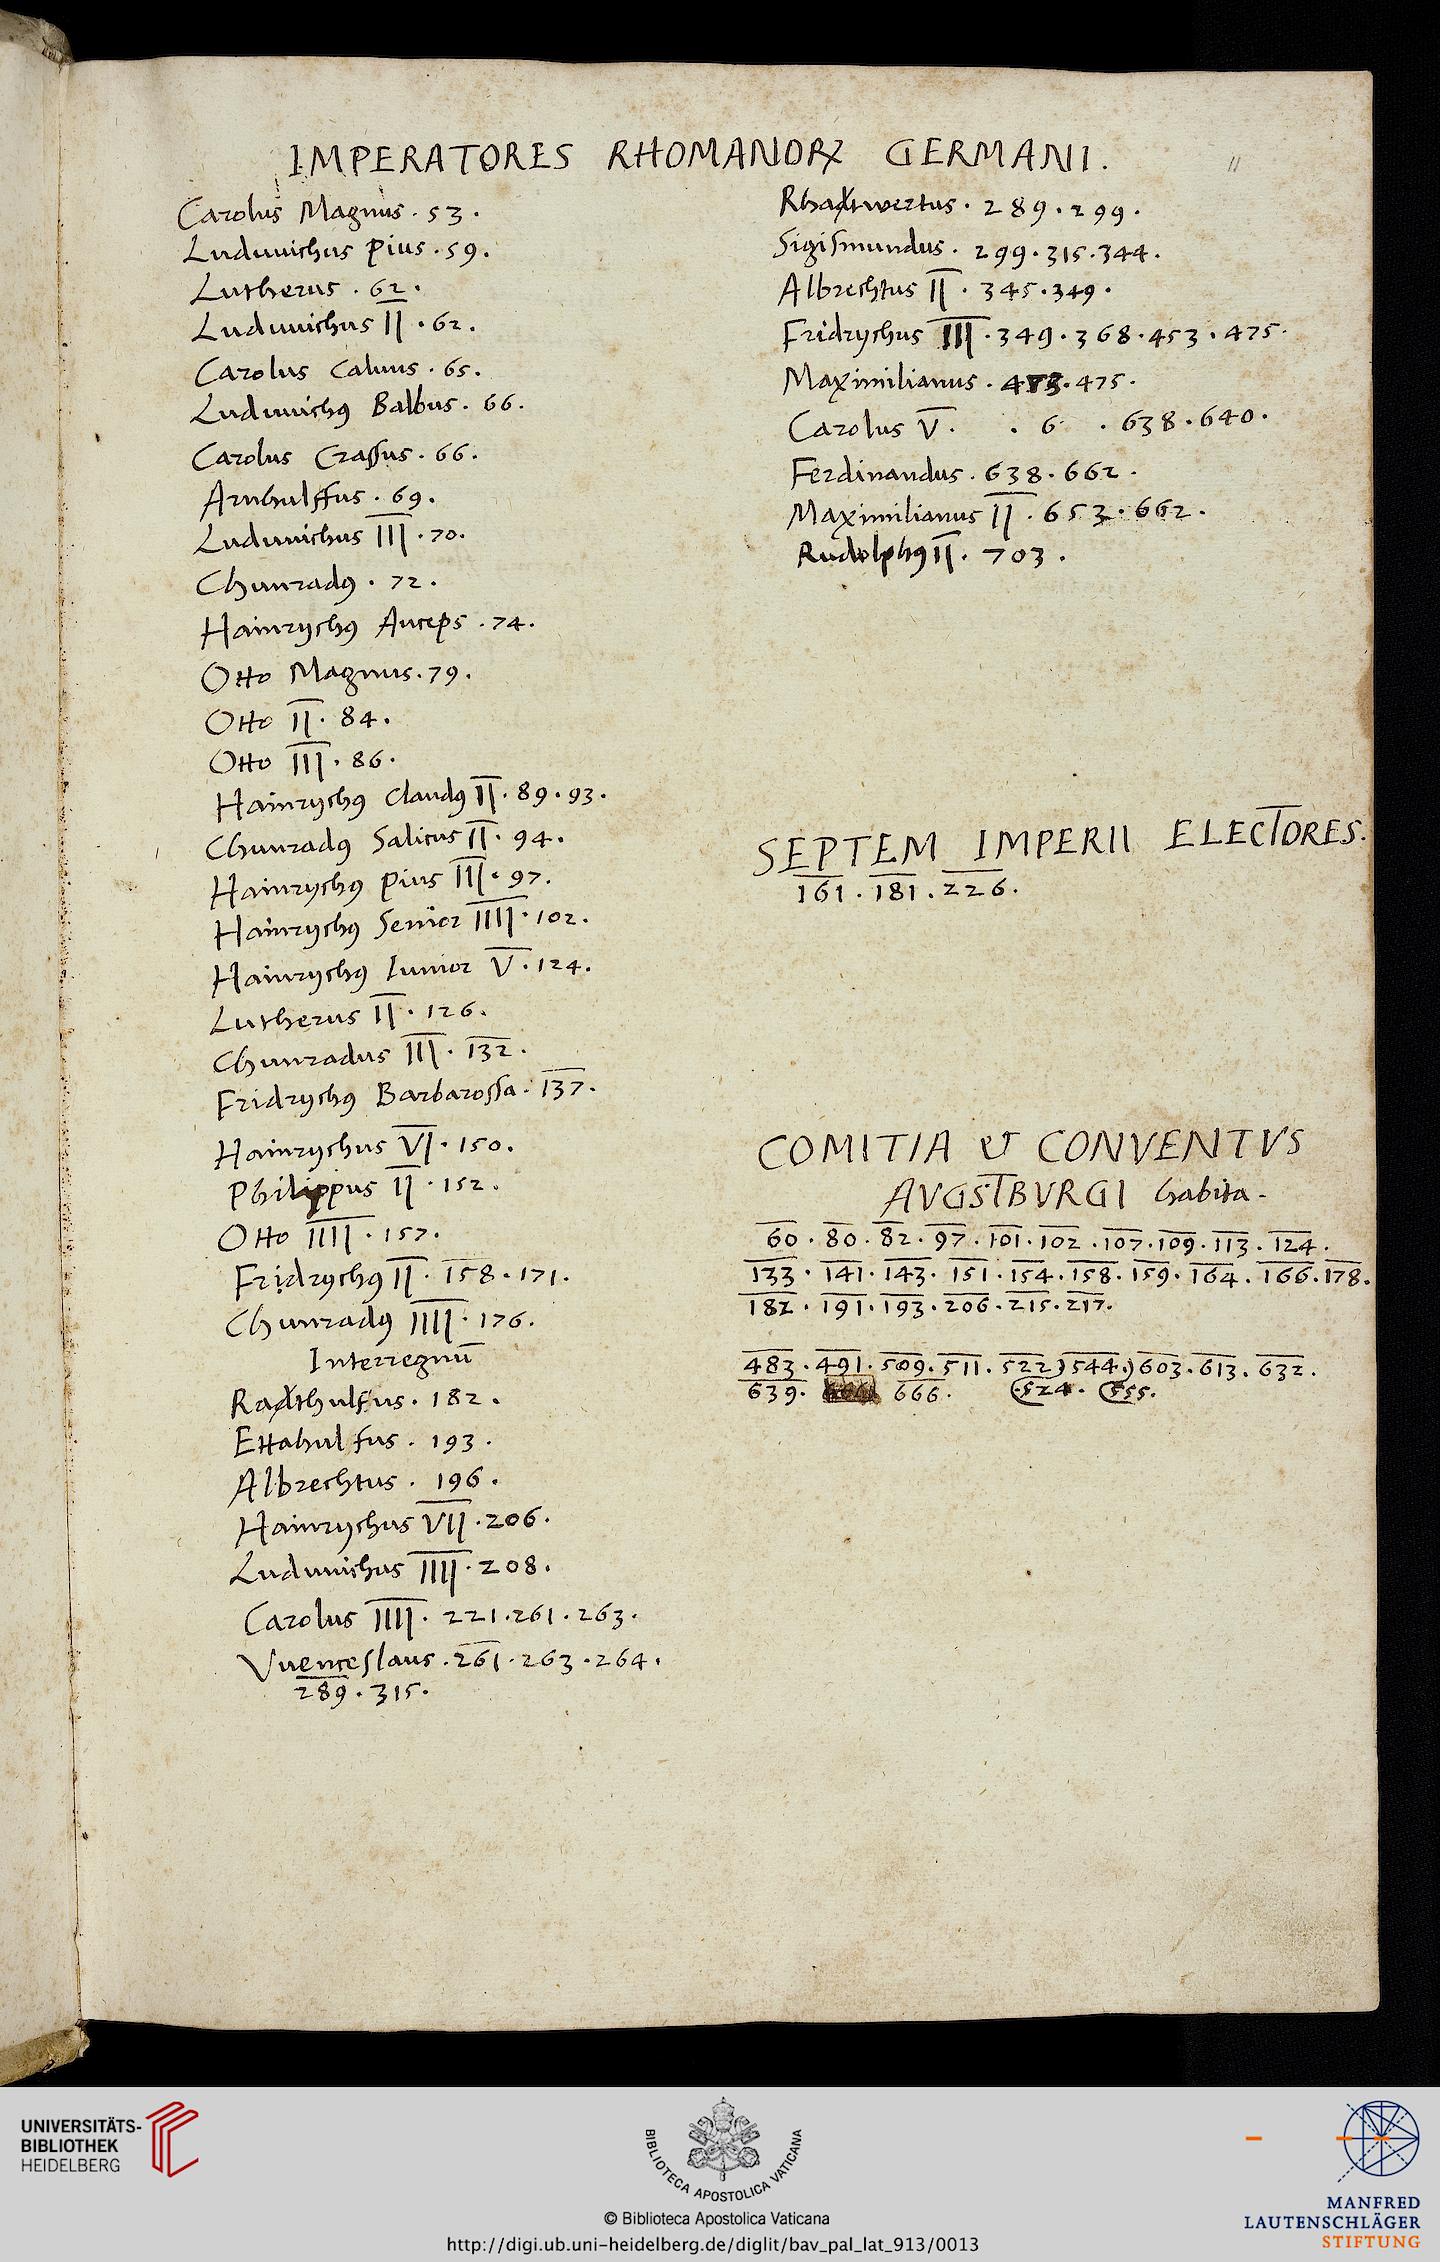 IMPERATORES RHOMANORꝜ GERMANI.
11
Carolus Magnus . 53 .
Luduuichus Pius . 59 .
Lutherus . 62 .
Luduuichus II . 62 .
Carolus Caluus . 65 .
Luduuichꝰ Balbus . 66 .
Carolus Crassus . 66 .
Arnhulffus . 69 .
Luduuichus III . 70 .
Chunradꝰ . 72 .
Hainrychꝰ Auceps . 74 .
Otto Magnus . 79 .
Otto II . 84 .
Otto III . 86 .
Hainrychꝰ Claudꝰ II . 89 . 93 .
Chunradꝰ Salicus II . 94 .
Hainrychꝰ Pius III . 97 .
Hainrychꝰ Senior IIII . 102 .
Hainrychꝰ Iunior V . 124 .
Lutherus II . 126 .
Chunradus III . 132 .
Fridrychꝰ Barbarossa . 137 .
Hainrychus VI . 150 .
Philippus II . 152 .
Otto IIII . 157 .
Fridrychꝰ II . 158 . 171 .
Chunradꝰ IIII . 176 .
Interregnū
Radthulfus . 182 .
Ettahulfus . 193 .
Albrechtus . 196 .
Hainrychus VII . 206 .
Luduuichus IIII . 208 .
Carolus IIII . 221 . 261 . 263 .
Vuenceslaus . 261 . 263 . 264 .
289 . 315 .
Rhadtwertus . 289 . 299 .
Sigismundus . 299 . 315 . 344 .
Albrechtus II . 345 . 349 .
Fridrychus III . 349 . 368 . 453 . 475 .
Maximilianus . 473 . 475 .
Carolus V . . 6 . 638 . 640 .
Ferdinandus . 638 . 662 .
Maximilianus II . 653 . 662 .
Rudolphꝰ II . 703 .
SEPTEM IMPERII ELECTORES.
161 . 181 . 226 .
COMITIA & CONVENTVS
AVGSTBVRGI habita .
60 . 80 . 82 . 97 . 101 . 102 . 107 . 109 . 113 . 124 .
133 . 141 . 143 . 151 . 154 . 158 . 159 . 164 . 166 . 178 .
182 . 191 . 193 . 206 . 215 . 217 .
483 . 491 . 509 . 511 . 522 ) 544 . ) 603 . 613 . 632 .
639 . 666 . ( . 524 . ( 555 .
UNIVERSITÄTS-
BIBLIOTHEK
HEIDELBERG
BIBLIOTECA APOSTOLICA VATICANA
© Biblioteca Apostolica Vaticana
http://digi.ub.uni-heidelberg.de/diglit/bav_pal_lat_913/0013
MANFRED
LAUTENSCHLÄGER
STIFTUNG